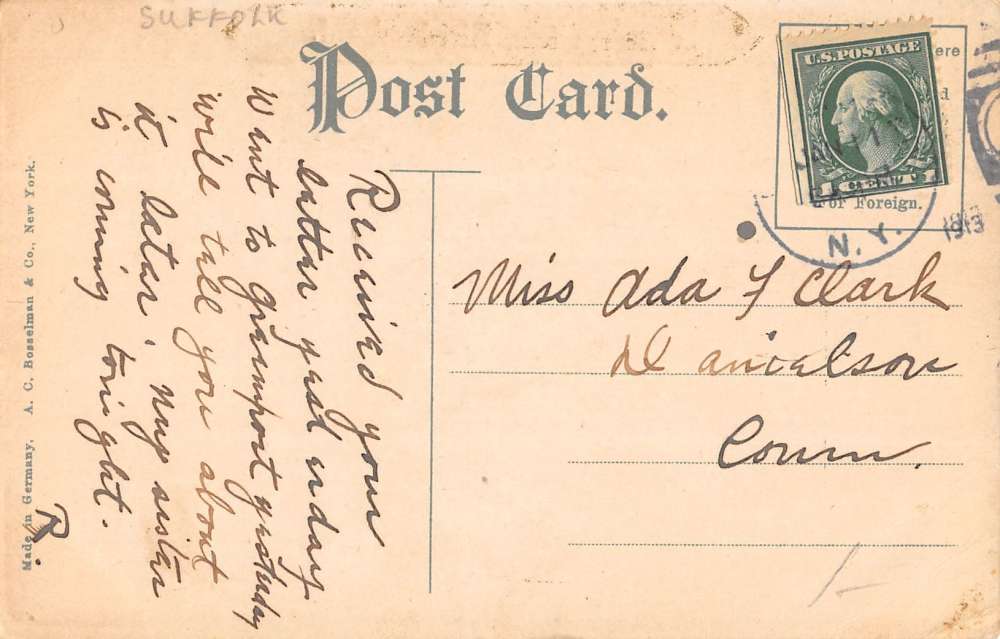 SUFFOLK
Post Card.
ere
d
For Foreign.
U.S. POSTAGE
1 CENT 1
N. Y.
1913
Miss Ada F Clark
Danielson
Conn.
Received your
letter yesterday
Went to Greenport yesterday
will tell you about
it later. my sister
is coming tonight.
R.
Made in Germany. A. C. Bosselman & Co., New York.